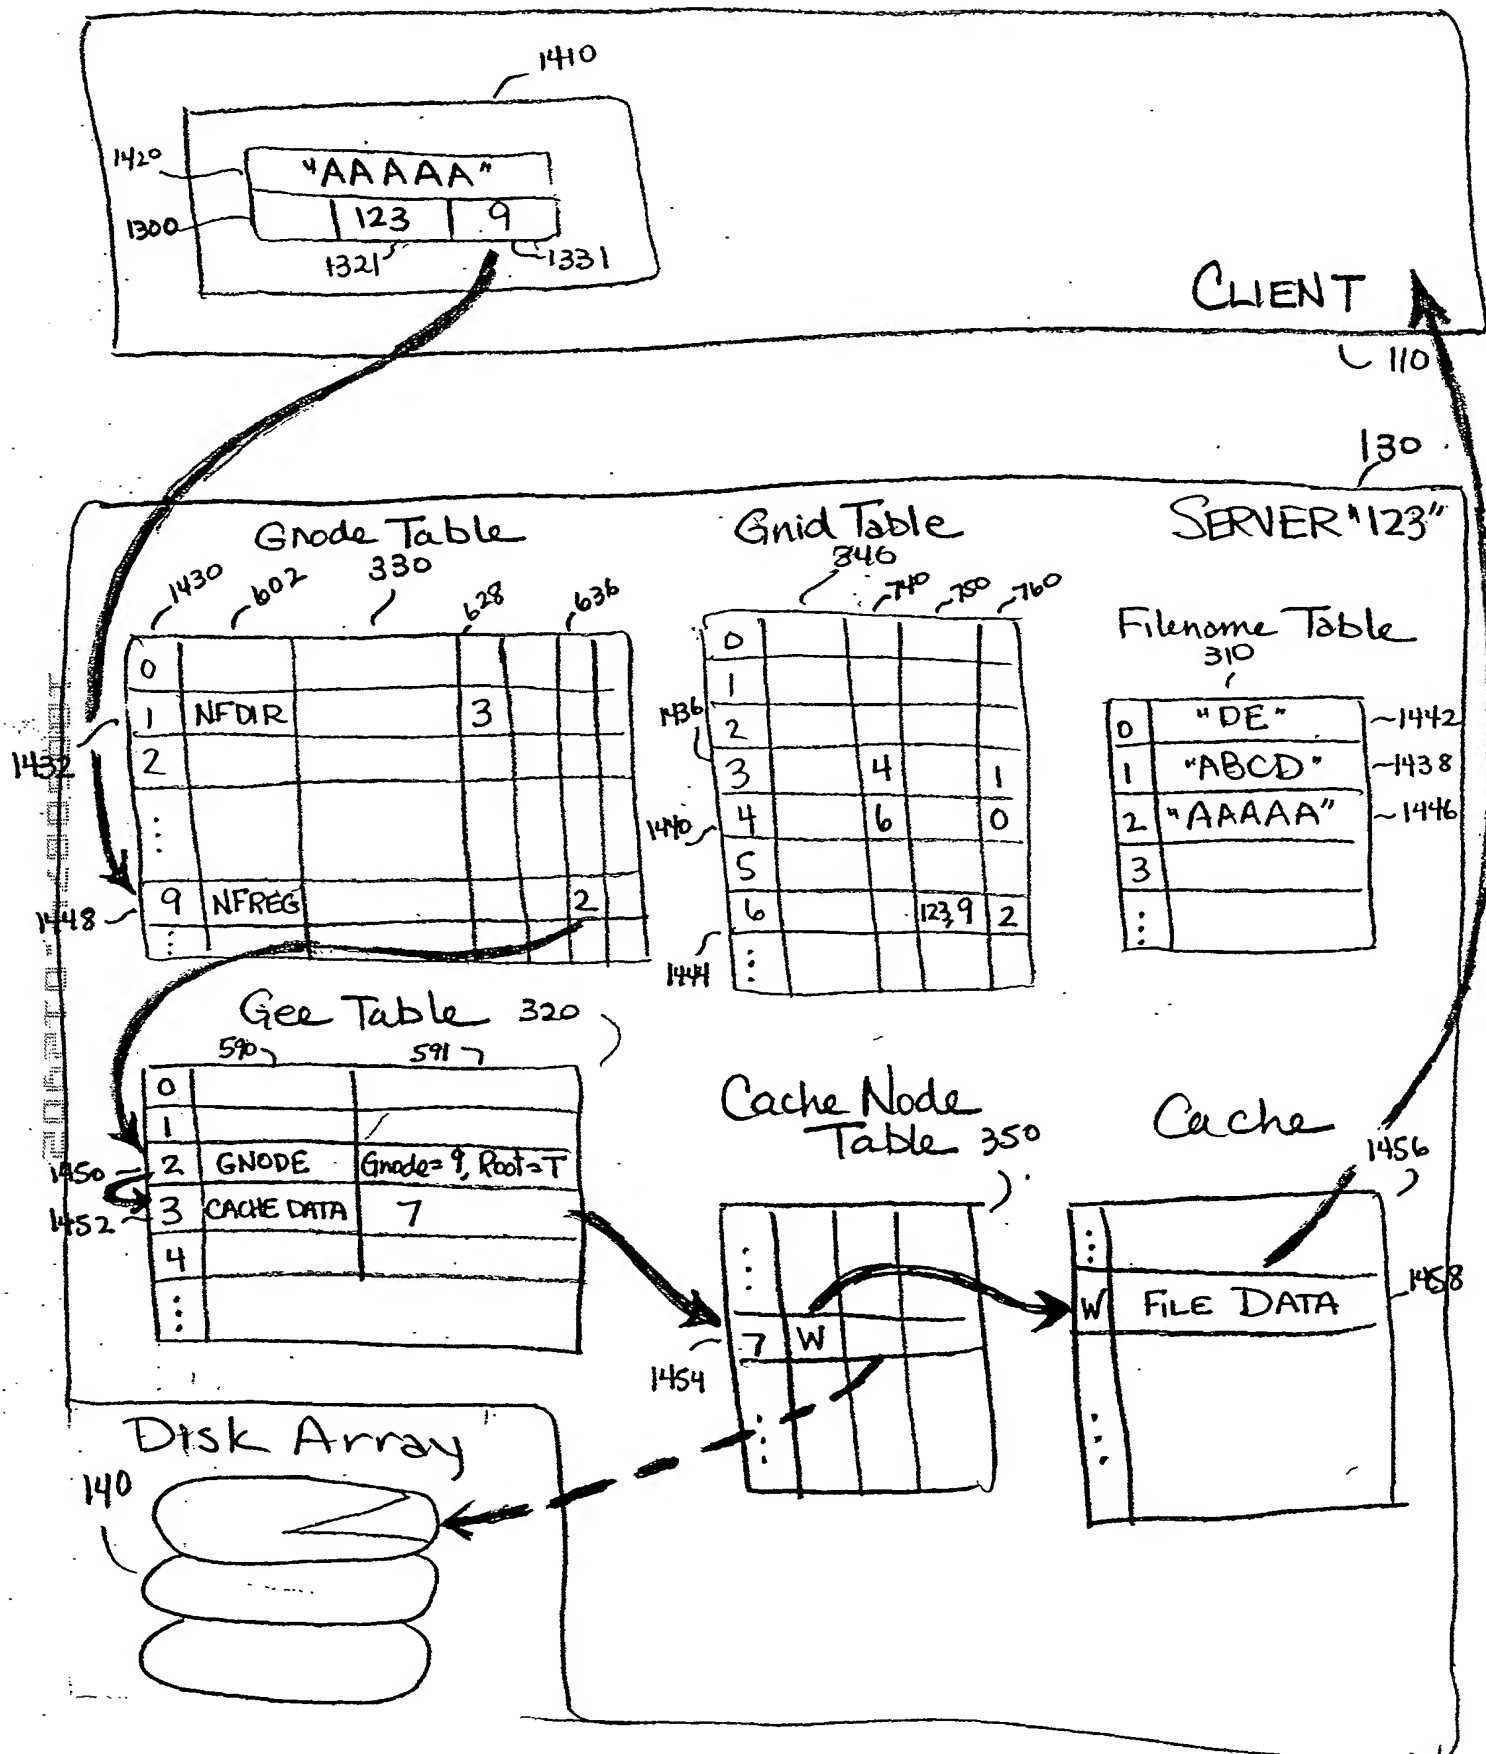 1410
1420
"AAAAA"
1300
123 9
1321 1331
CLIENT
110
130
SERVER "123"
Gnode Table
330
1430 602 628 636
0
1 NFDIR 3
1432
2
⋮
9 NFREG 2
1448
⋮
Gnid Table
340
740 750 760
0
1
1436
2
3 4 1
1440
4 6 0
5
6 123,9 2
1444
⋮
Filename Table
310
0 "DE" 1442
1 "ABCD" 1438
2 "AAAAA" 1446
3
⋮
Gee Table 320
590 591
0
1
1450 2 GNODE Gnode=9, Root=T
1452 3 CACHE DATA 7
4
⋮
Cache Node
Table 350
⋮
7 W
1454
⋮
Cache
1456
⋮
1458
W FILE DATA
⋮
Disk Array
140